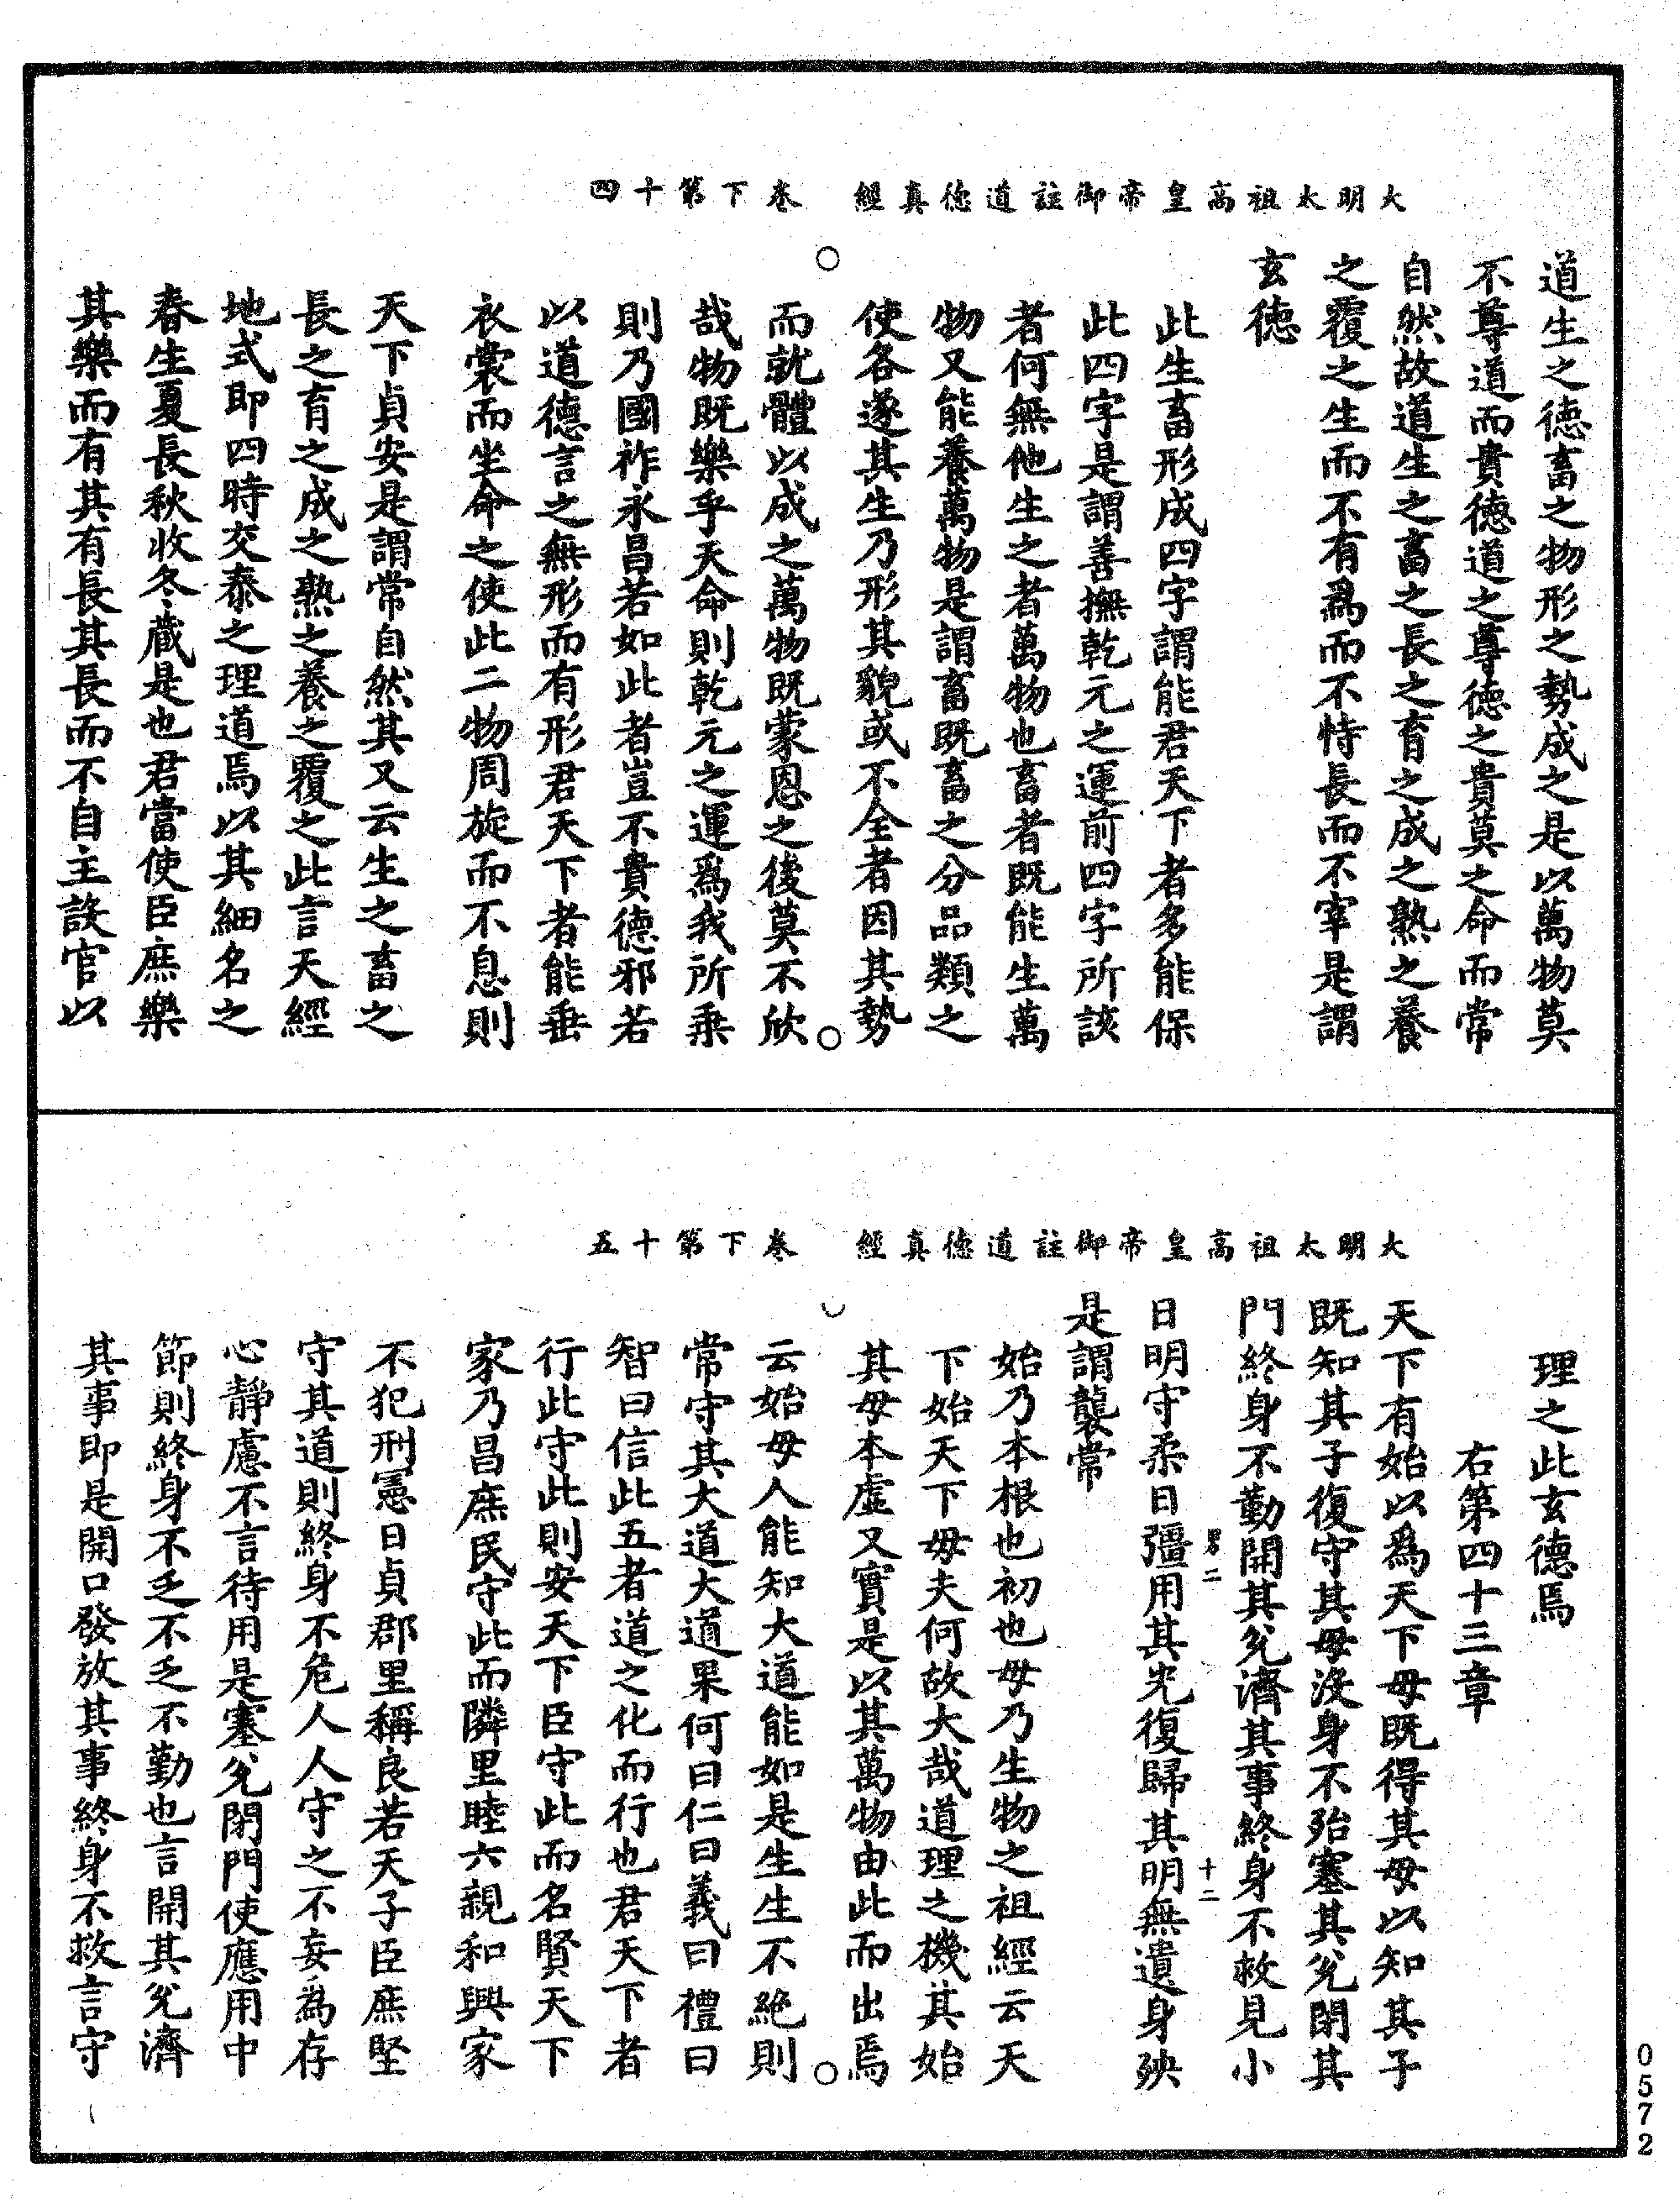 大明太祖高皇帝御註道德真經　卷下第十四
道生之德畜之物形之勢成之是以萬物莫
不尊道而貴德道之尊德之貴莫之命而常
自然故道生之畜之長之育之成之熟之養
之覆之生而不有爲而不恃長而不宰是謂
玄德
此生畜形成四字謂能君天下者多能保
此四字是謂善撫乾元之運前四字所談
者何無他生之者萬物也畜者既能生萬
物又能養萬物是謂畜既畜之分品類之
使各遂其生乃形其貌或不全者因其勢
而就體以成之萬物既蒙恩之後莫不欣
哉物既樂乎天命則乾元之運爲我所乗
則乃國祚永昌若如此者豈不貴德邪若
以道德言之無形而有形君天下者能垂
衣裳而坐命之使此二物周旋而不息則
天下貞安是謂常自然其又云生之畜之
長之育之成之熟之養之覆之此言天經
地式即四時交泰之理道焉以其細名之
春生夏長秋收冬藏是也君當使臣庶樂
其樂而有其有長其長而不自主設官以
大明太祖高皇帝御註道德真經　卷下第十五
理之此玄德焉
右第四十三章
天下有始以爲天下母既得其母以知其子
既知其子復守其母沒身不殆塞其兊閉其
門終身不勤開其兊濟其事終身不救見小
男二　十二
日明守柔日彊用其光復歸其明無遺身殃
是謂襲常
始乃本根也初也母乃生物之祖經云天
下始天下母夫何故大哉道理之機其始
其母本虛又實是以其萬物由此而出焉
云始母人能知大道能如是生生不絶則
常守其大道大道果何曰仁曰義曰禮曰
智曰信此五者道之化而行也君天下者
行此守此則安天下臣守此而名賢天下
家乃昌庶民守此而隣里睦六親和興家
不犯刑憲日貞郡里稱良若天子臣庶堅
守其道則終身不危人人守之不妄爲存
心靜慮不言待用是塞兊閉門使應用中
節則終身不乏不乏不勤也言開其兊濟
其事即是開口發放其事終身不救言守
0572